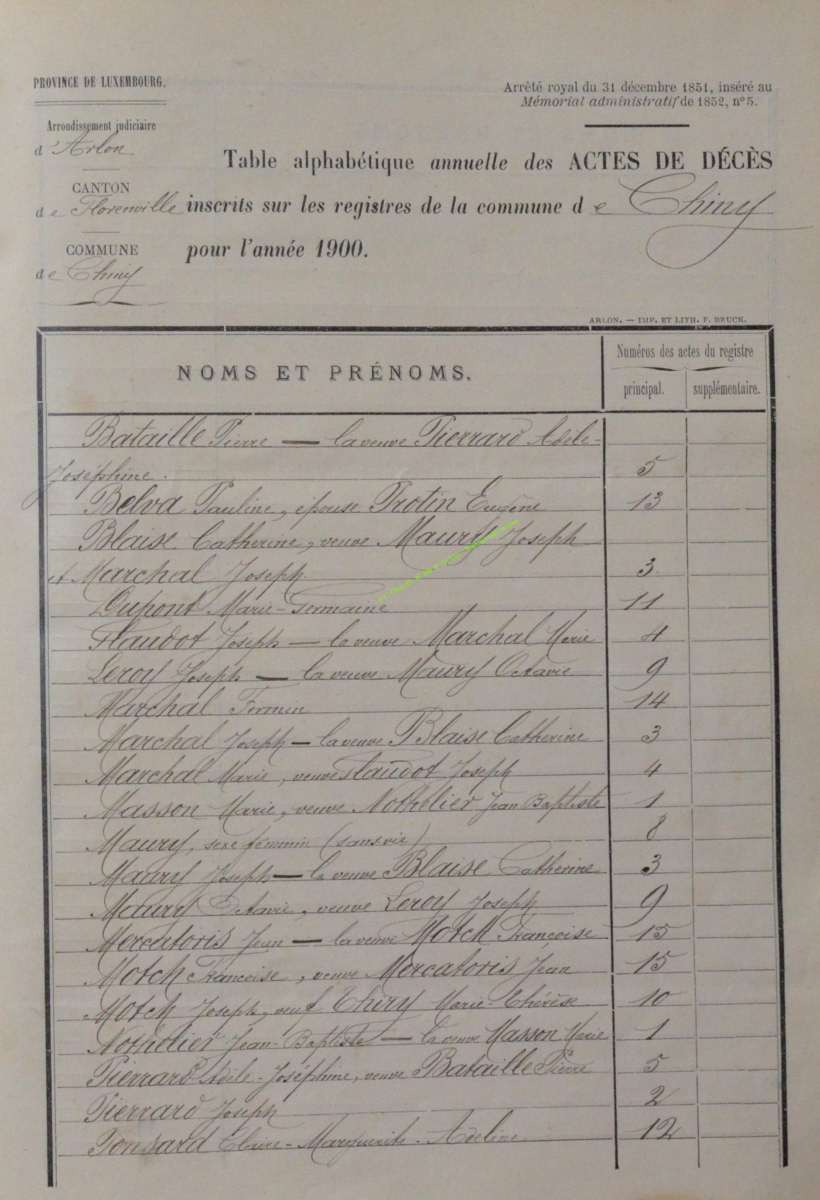 PROVINCE DE LUXEMBOURG.
Arrêté royal du 31 décembre 1851, inséré au
Mémorial administratif de 1852, n° 5.
Arrondissement judiciaire
d'Arlon
CANTON
de Florenville
COMMUNE
de Chiny
Table alphabétique annuelle des ACTES DE DÉCÈS
inscrits sur les registres de la commune de Chiny
pour l'année 1900.
ARLON. — IMP. ET LITH. F. BRUCK.
NOMS ET PRÉNOMS.
Numéros des actes du registre
principal. supplémentaire.
Bataille Pierre — la veuve Pierrard Adèle-
Joséphine. 5
Belva Pauline, épouse Protin Eugène 13
Blaise Catherine, veuve Maury Joseph
et Marchal Joseph 3
Dupont Marie-Germaine 11
Flaudot Joseph — la veuve Marchal Marie 4
Leroy Joseph — la veuve Maury Octavie 9
Marchal Firmin 14
Marchal Joseph — la veuve Blaise Catherine 3
Marchal Marie, veuve Flaudot Joseph 4
Masson Marie, veuve Nothelier Jean Baptiste 1
Maury, sexe féminin (sans vie) 8
Maury Joseph — la veuve Blaise Catherine 3
Maury Octavie, veuve Leroy Joseph 9
Mercatoris Jean — la veuve Motch Françoise 15
Motch Françoise, veuve Mercatoris Jean 15
Motch Joseph, veuf Thiry Marie-Thérèse 10
Nothelier Jean-Baptiste — la veuve Masson Marie 1
Pierrard Adèle-Joséphine, veuve Bataille Pierre 5
Pierrard Joseph 2
Ponsard Claire-Marguerite-Adeline 12